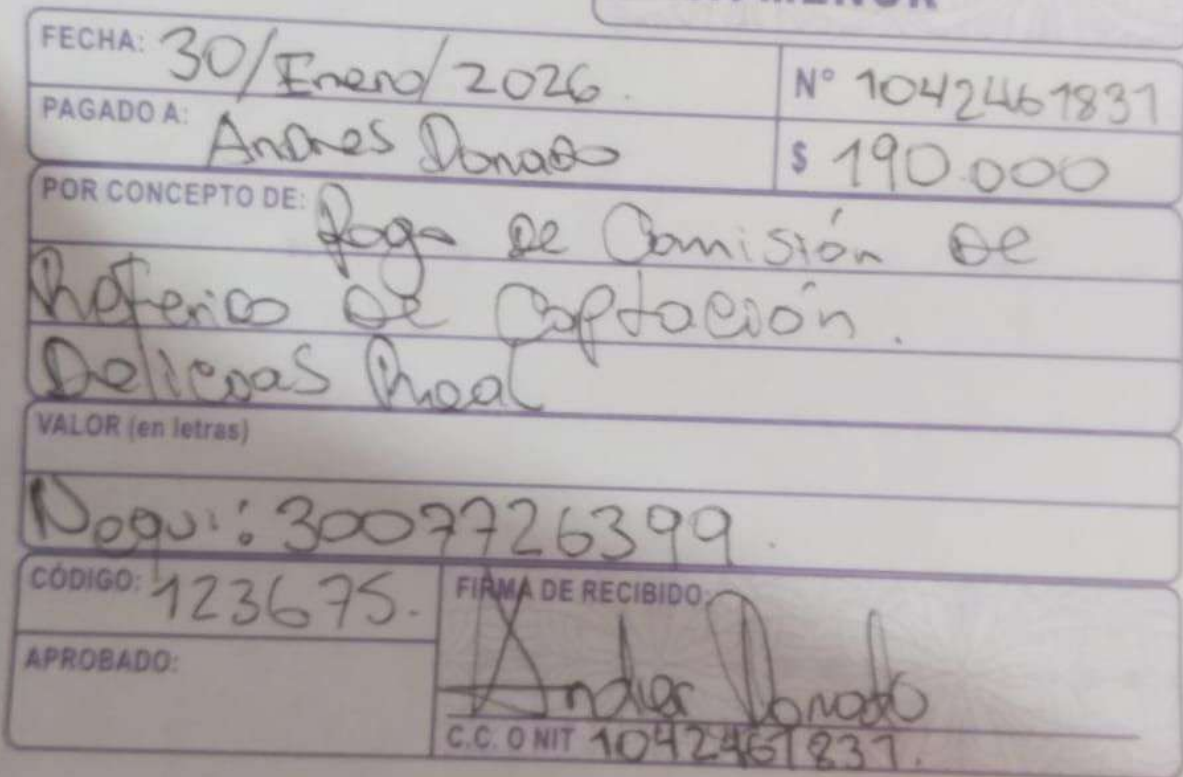 FECHA: 30/Enero/2026.
N° 1042461831
PAGADO A: Andres Donado
$ 190.000
POR CONCEPTO DE: Pago de Comisión de
Referido de Captación.
Delicias Real
VALOR (en letras)
Nequi: 3007726399.
CÓDIGO: 123675.
FIRMA DE RECIBIDO:
Andres Donado
APROBADO:
C.C. O NIT 1042461831.